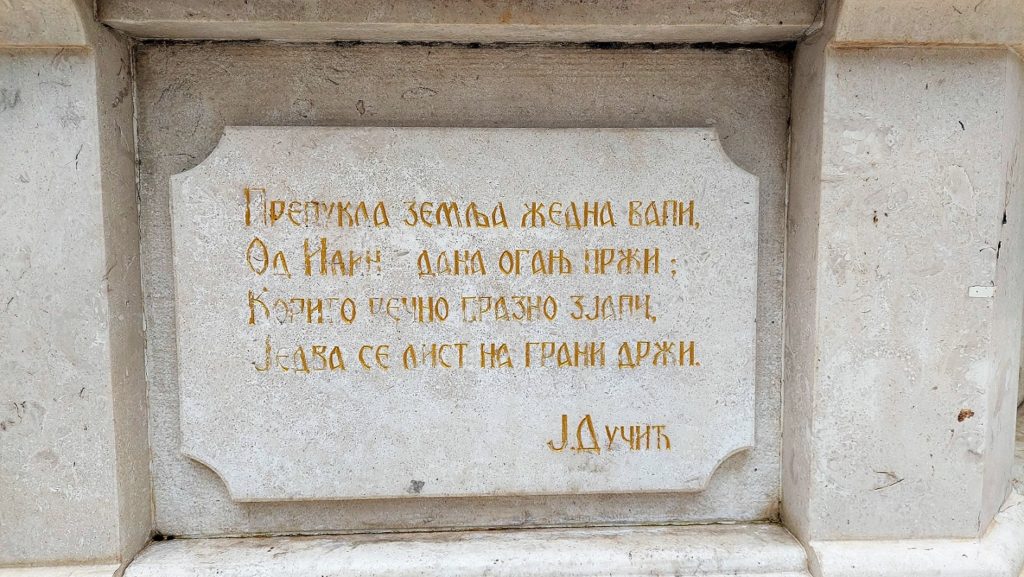 Препукла земља жедна вапи,
Од Илин - дана огањ пржи ;
Корито речно празно зјапи,
Једва се лист на грани држи.
Ј.Дучић